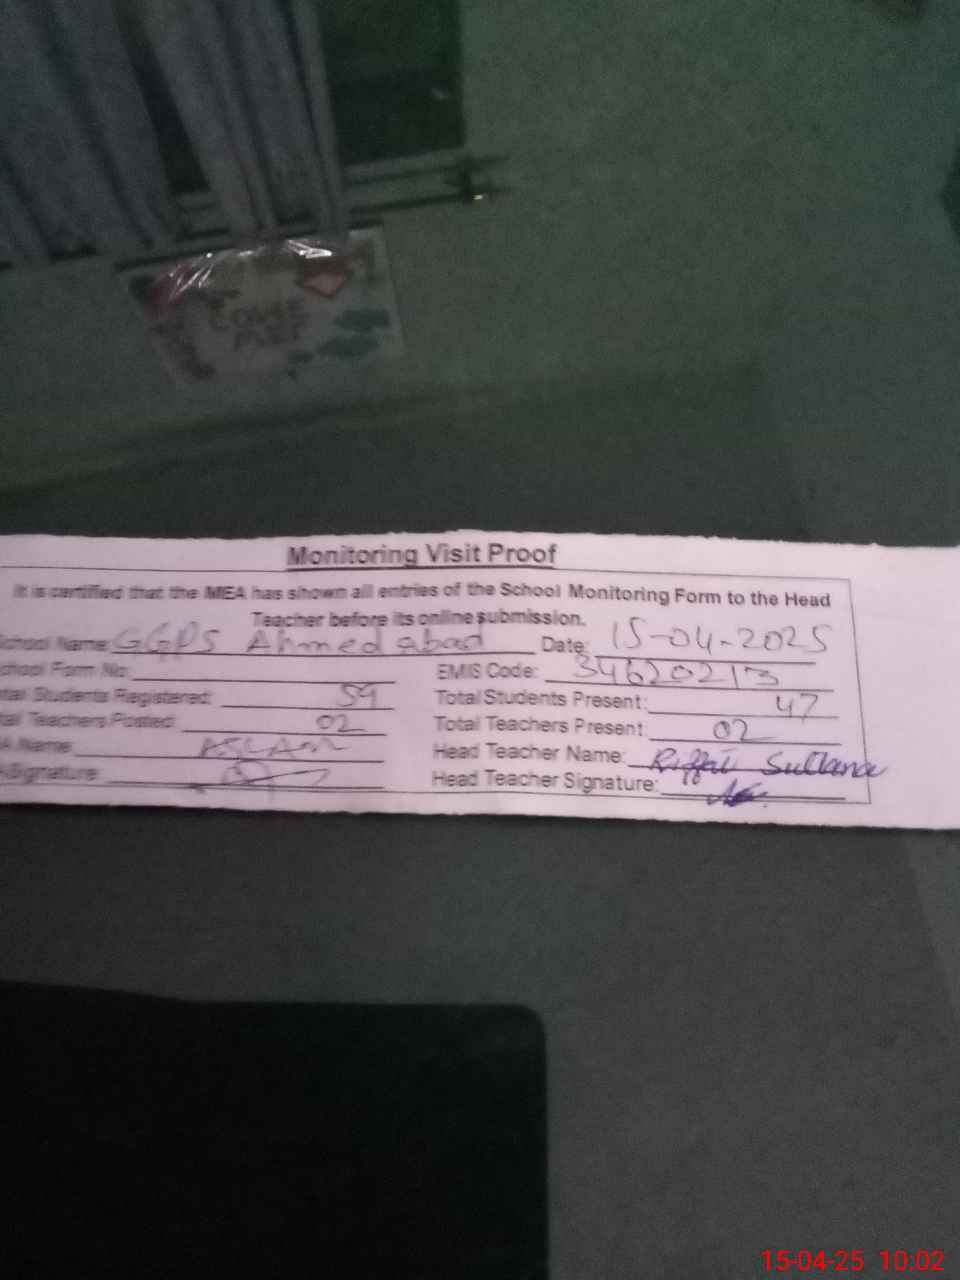 Monitoring Visit Proof
It is certified that the MEA has shown all entries of the School Monitoring Form to the Head
Teacher before its online submission.
School Name: GGPS Ahmed abad Date: 15-04-2025
School Form No: EMIS Code: 34620213
Total Students Registered: 59 Total Students Present: 47
Total Teachers Posted: 02 Total Teachers Present: 02
A Name: ASLAM Head Teacher Name: Riffat Sultana
Signature: Head Teacher Signature:
15-04-25 10:02